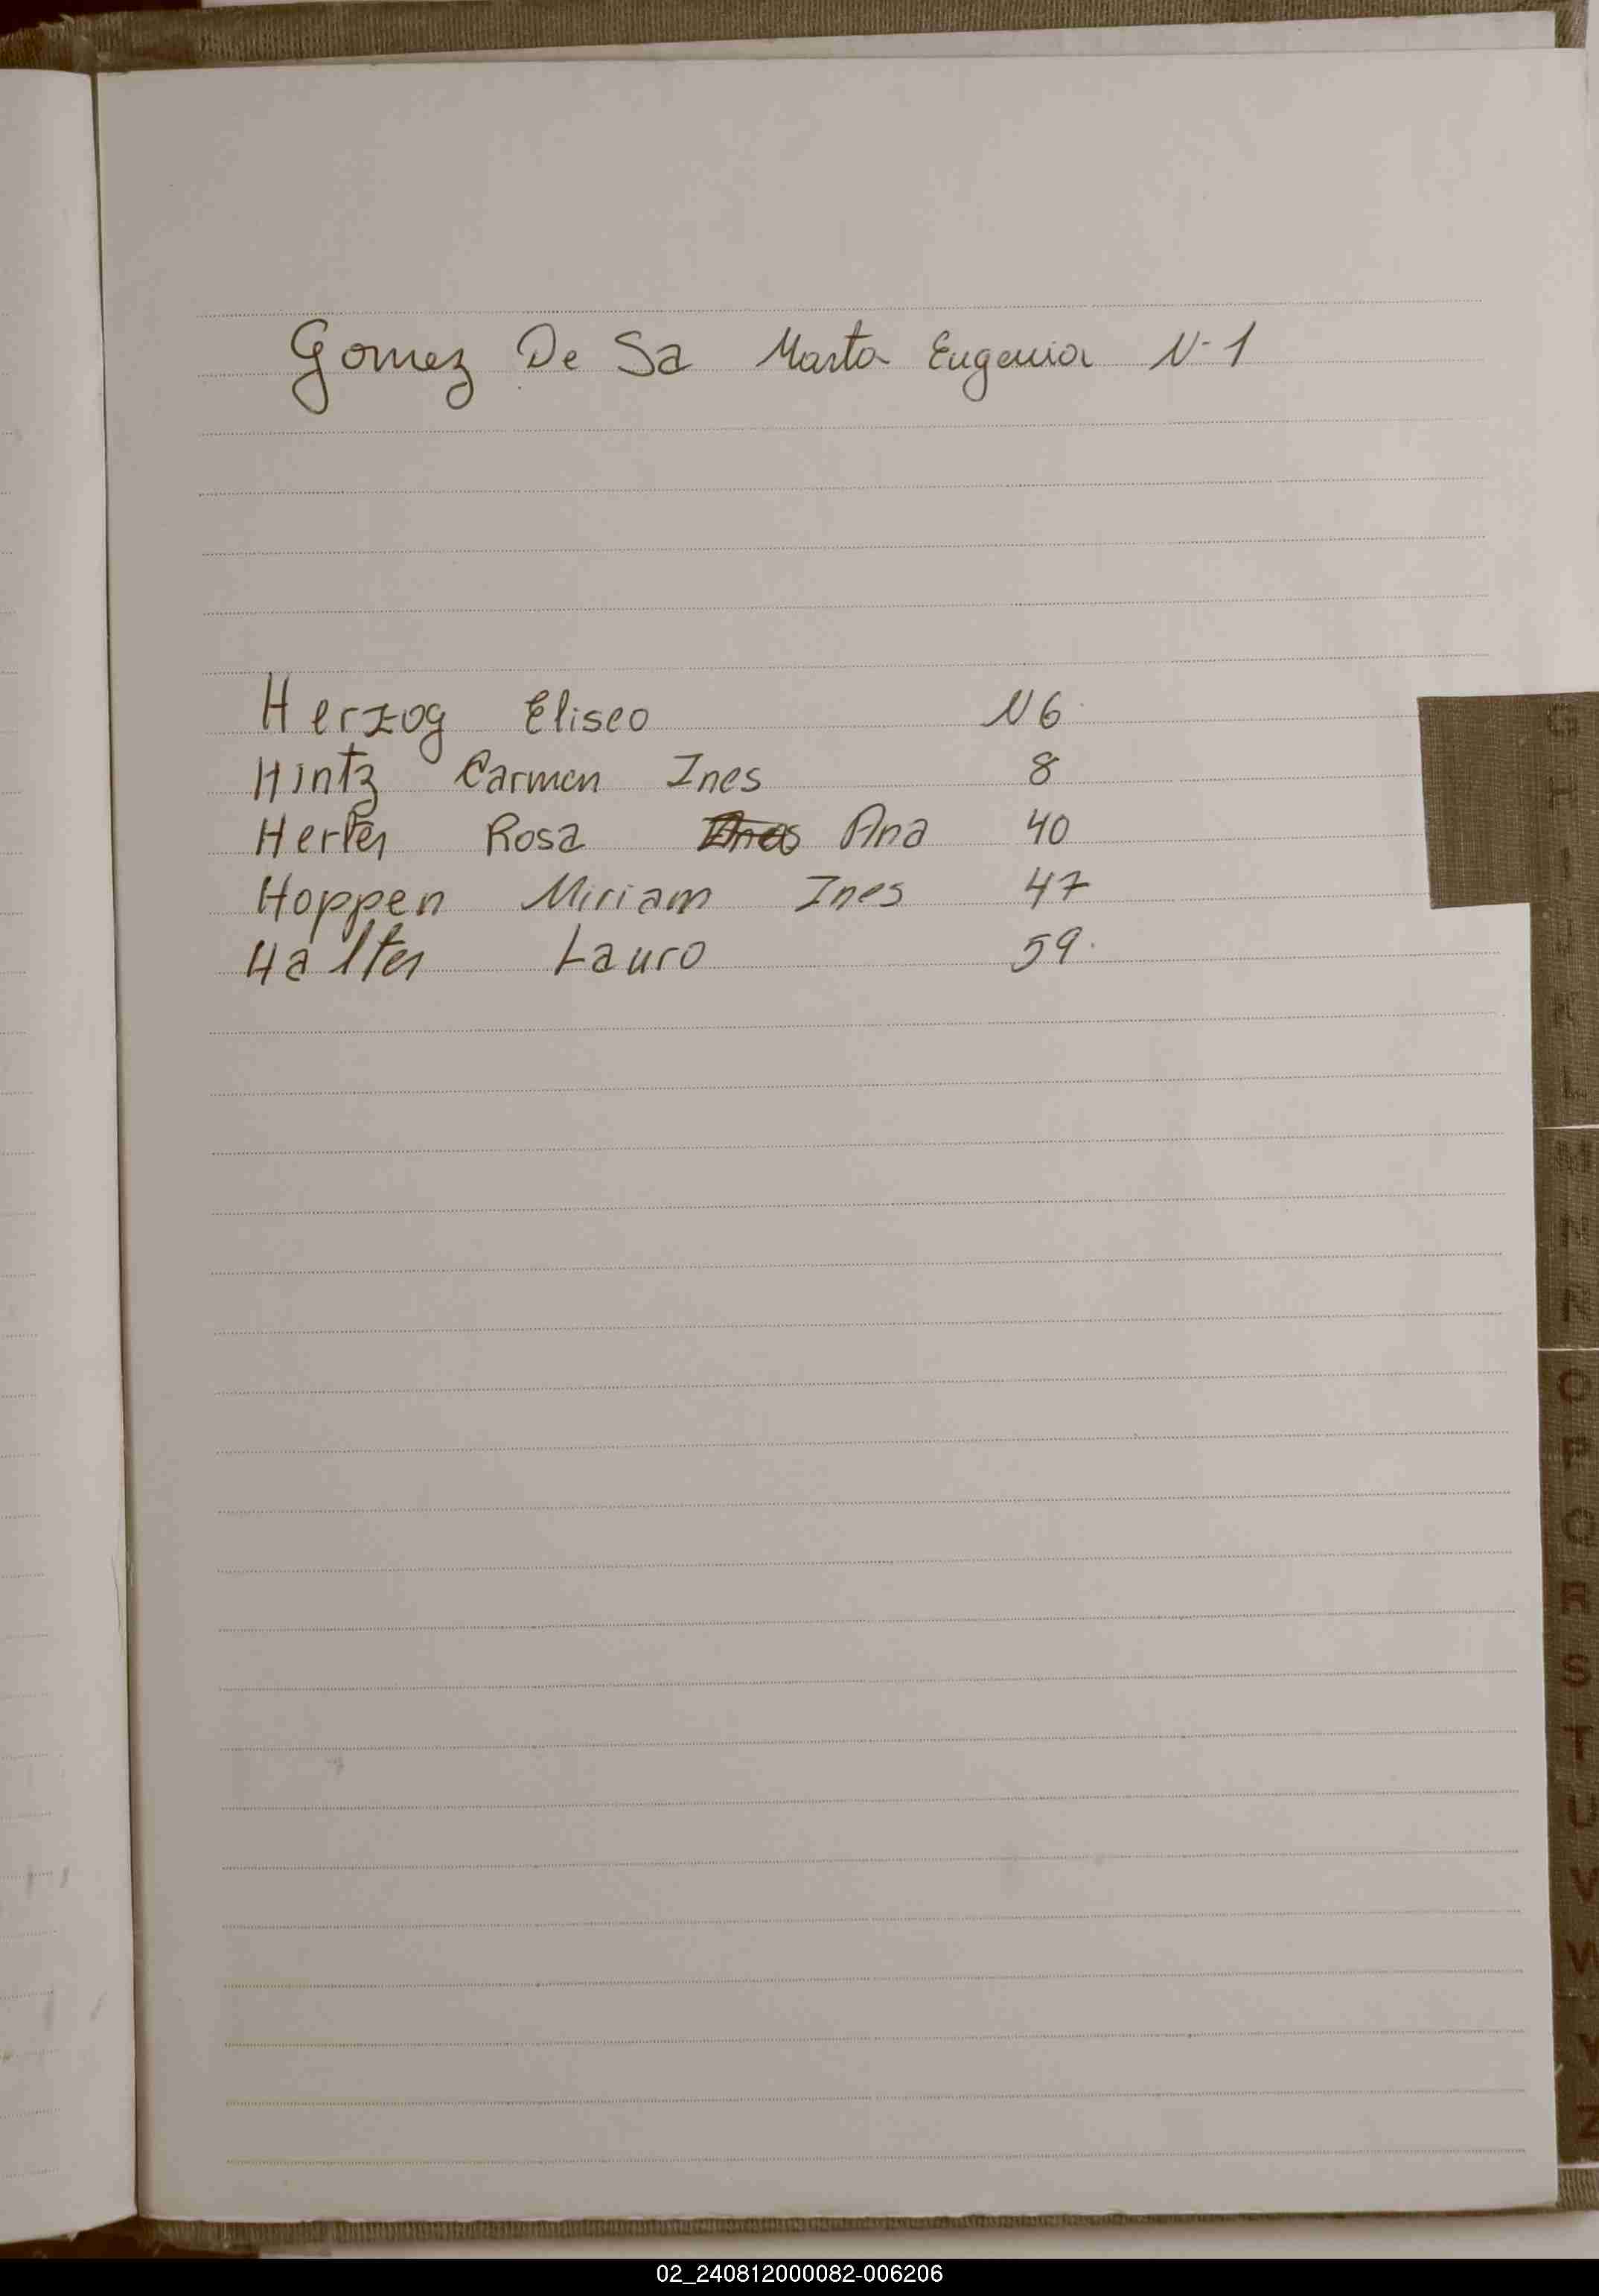 Gomez De Sa Marta Eugenia N-1
Herzog Eliseo N 6
Hintz Carmen Ines 8
Herter Rosa Ines Ana 40
Hoppen Miriam Ines 47
Halter Lauro 59.
G
H
I
J
K
L
M
N
Ñ
O
P
Q
R
S
T
U
V
W
Y
Z
02_240812000082-006206